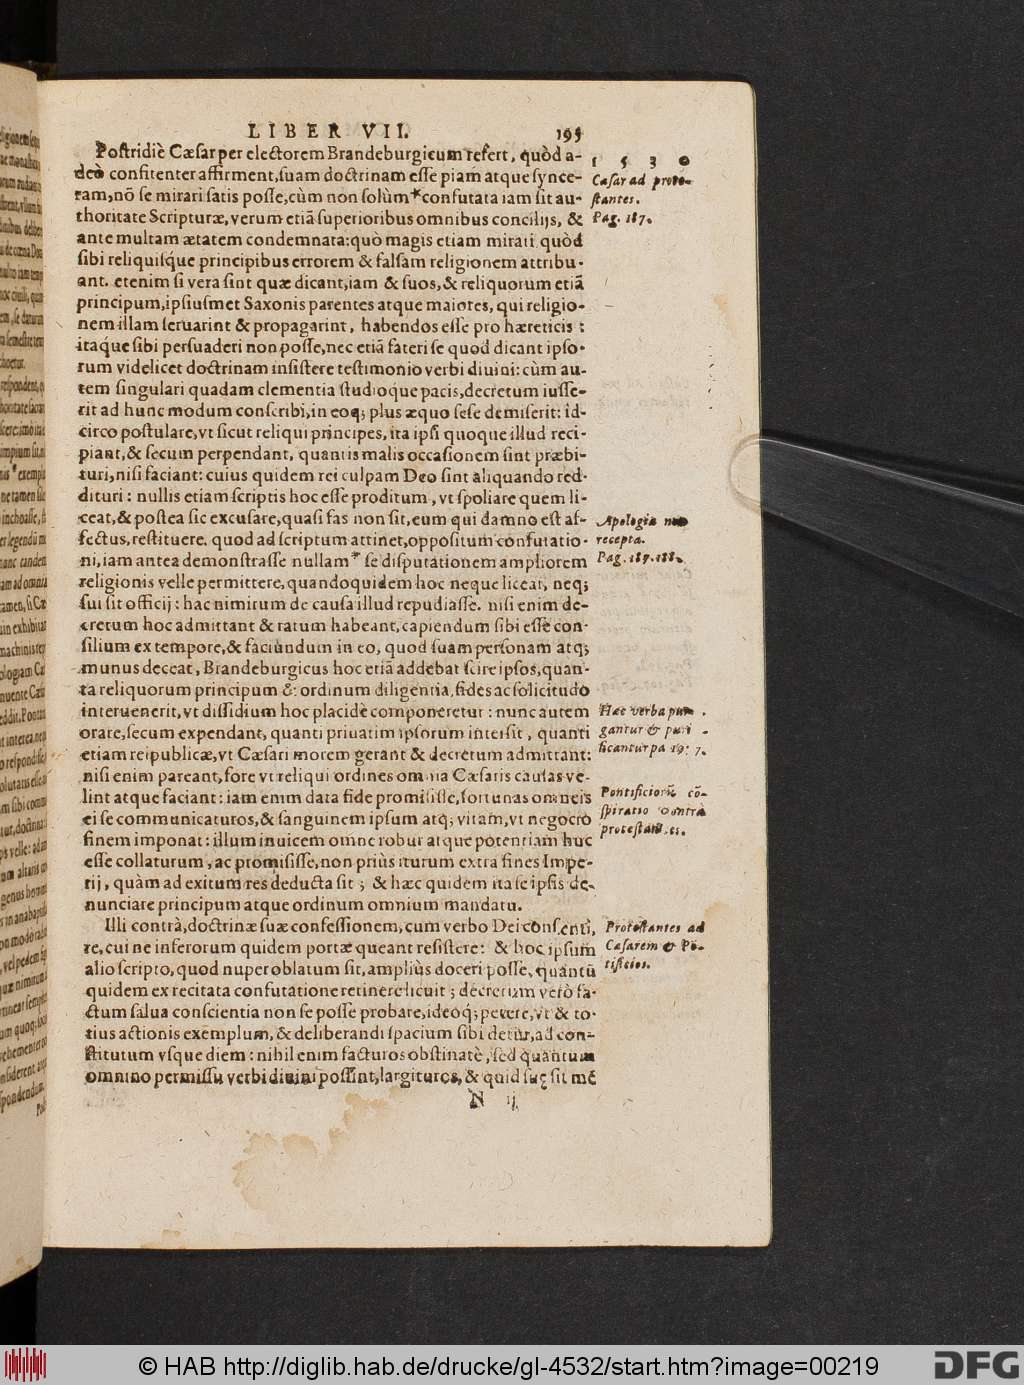 LIBER VII. 195
Postridiè Cæsar per electorem Brandeburgicum refert, quòd a-
deò confitenter affirment, suam doctrinam esse piam atque synce-
ram, nō se mirari satis posse, cùm non solùm * confutata iam sit au-
thoritate Scripturæ, verum etiā superioribus omnibus concilijs, &
ante multam ætatem condemnata: quò magis etiam mirati quòd
sibi reliquisq́ue principibus errorem & falsam religionem attribu-
ant. etenim si vera sint quæ dicant, iam & suos, & reliquorum etiā
principum, ipsiusmet Saxonis parentes atque maiores, qui religio-
nem illam seruarint & propagarint, habendos esse pro hæreticis:
itaq́ue sibi persuaderi non posse, nec etiā fateri se quod dicant ipso-
rum videlicet doctrinam insistere testimonio verbi diuini: cùm au-
tem singulari quadam clementia studioque pacis, decretum iusse-
rit ad hunc modum conscribi, in eoq; plus æquo sese demiserit: id-
circo postulare, vt sicut reliqui principes, ita ipsi quoque illud reci-
piant, & secum perpendant, quantis malis occasionem sint præbi-
turi, nisi faciant: cuius quidem rei culpam Deo sint aliquando red-
dituri: nullis etiam scriptis hoc esse proditum, vt spoliare quem li-
ceat, & postea sic excusare, quasi fas non sit, eum qui damno est af-
fectus, restituere. quod ad scriptum attinet, oppositum confutatio-
ni, iam antea demonstrasse nullam * se disputationem ampliorem
religionis velle permittere, quandoquidem hoc neque liceat, neq;
sui sit officij: hac nimirum de causa illud repudiasse. nisi enim de-
cretum hoc admittant & ratum habeant, capiendum sibi esse con-
silium ex tempore, & faciundum in eo, quod suam personam atq;
munus deceat, Brandeburgicus hoc etiā addebat scire ipsos, quan-
ta reliquorum principum & ordinum diligentia, fides ac solicitudo
interuenerit, vt dissidium hoc placidè componeretur: nunc autem
orare, secum expendant, quanti priuatim ipsorum intersit, quanti
etiam reipublicæ, vt Cæsari morem gerant & decretum admittant:
nisi enim pareant, fore vt reliqui ordines omnia Cæsaris causa ve-
lint atque faciant: iam enim data fide promisisse, fortunas omneis
ei se communicaturos, & sanguinem ipsum atq; vitam, vt negocio
finem imponat: illum inuicem omne robur atque potentiam huc
esse collaturum, ac promisisse, non priùs iturum extra fines Impe-
rij, quàm ad exitum res deducta sit; & hæc quidem ita se ipsis de-
nunciare principum atque ordinum omnium mandatu.
Illi contrà, doctrinæ suæ confessionem, cum verbo Dei consenti-
re, cui ne inferorum quidem portæ queant resistere: & hoc ipsum
alio scripto, quod nuper oblatum sit, ampliùs doceri posse, quantū
quidem ex recitata confutatione retinere licuit; decretum verò fa-
ctum salua conscientia non se posse probare, ideoq; petere, vt & to-
tius actionis exemplum, & deliberandi spacium sibi detur, ad con-
stitutum vsque diem: nihil enim facturos obstinatè, sed quantum
omnino permissu verbi diuini possint, largituros, & quid suę sit mē
N ij
1 5 3 0
Cæsar ad prote-
stantes.
Pag. 187.
Apologia non
recepta.
Pag. 187. 188.
Hæc verba pur
gantur & puri
ficantur pa 197.
Pontificiorū cō-
spiratio contra
protestantes.
Protestantes ad
Cæsarem & Pō-
tificios.
© HAB http://diglib.hab.de/drucke/gl-4532/start.htm?image=00219
DFG